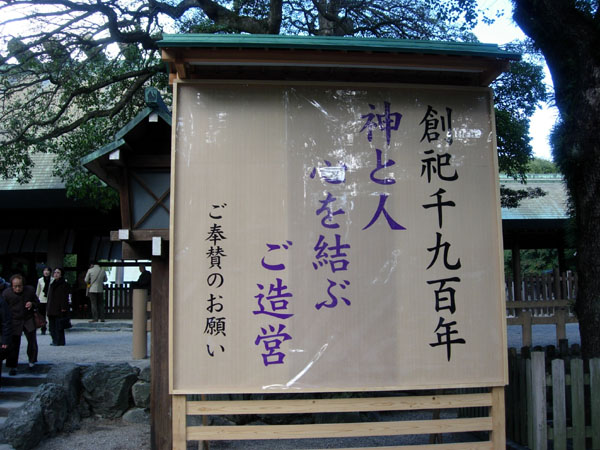 創祀千九百年
神と人
心を結ぶ
ご造営
ご奉賛のお願い